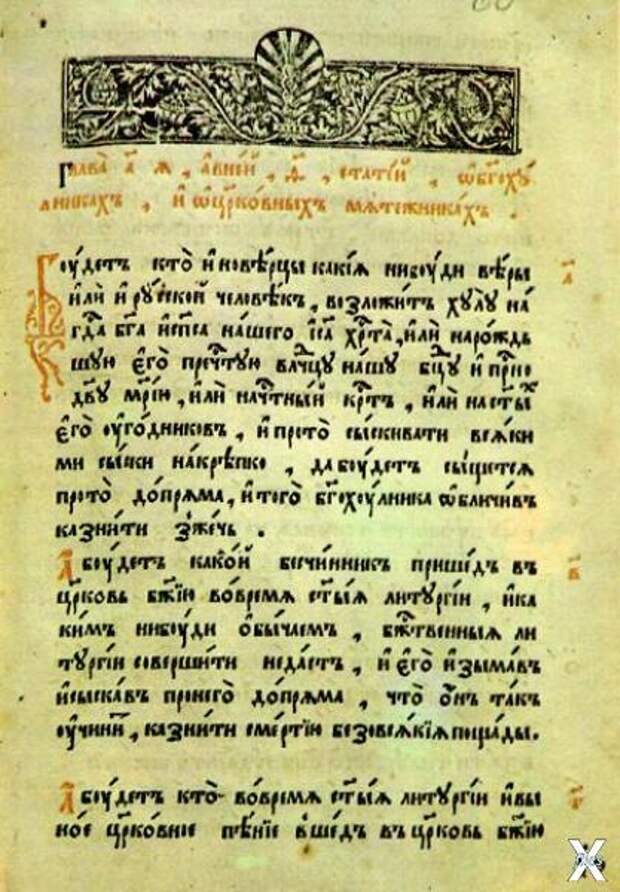 Глава̀ а҃ я҆, а҆вне́й, ѳ҃, статі́й, ѡ҆бг҃охꙋ́
лникахъ, и҆ ѡ҆цр҃ко́вныхъ мѧте́жникахъ.
Бꙋ́детъ кто̀ и҆нове́рцы какі́ѧ нибꙋди ве́ры
и҆лѝ и҆ рꙋ́сской человѣ́къ, возложи́тъ хꙋлꙋ̀ на
гдⷭ҇а бг҃а и҆сп҃са на́шего і҆с҃а хрⷭ҇та̀, и҆лѝ наро́ждь
шꙋю є҆го̀ пречⷭ҇тꙋю влⷣчцꙋ на́шꙋ бц҃ꙋ и҆ прⷭ҇но
дв҃ꙋ мр҃і́ю, и҆лѝ начⷭ҇тны́й крⷭ҇тъ, и҆лѝ насты́хъ
є҆го̀ ᲂу҆го́дниковъ, и҆ прото̀ сы́скивати всѧ́ки
ми сы́ски накрѣ́пко, да бꙋ́детъ сы́щетсѧ
прото̀ до́прѧма, и҆ того̀ бг҃охꙋ́лника ѡ҆бличи́въ
казни́ти зже́чь.
а҃
А҆ бꙋ́детъ како́й безчи́нникъ прише́дъ въ
цр҃ковь бж҃їю во́времѧ ст҃ы́ѧ литꙋргі́и, и҆ка
ки́мъ нибꙋди ѻ҆бы́чаемъ, бжⷭ҇твенныѧ ли
тꙋргі́и соверши́ти неда́стъ, и҆ є҆го̀ и҆зыма́въ
и҆сыска́въ пронего̀ до́прѧма, что̀ ѻ҆́нъ та́къ
ᲂу҆чини́тъ, казни́ти сме́ртїю безовсѧ́кїѧ поща́ды.
в҃
А҆ бꙋ́детъ кто̀ во́времѧ ст҃ы́ѧ литꙋргі́и и҆вы
но́е цр҃ко́вное пѣ́нїе вше́дъ въ цр҃ковь бж҃їю
г҃